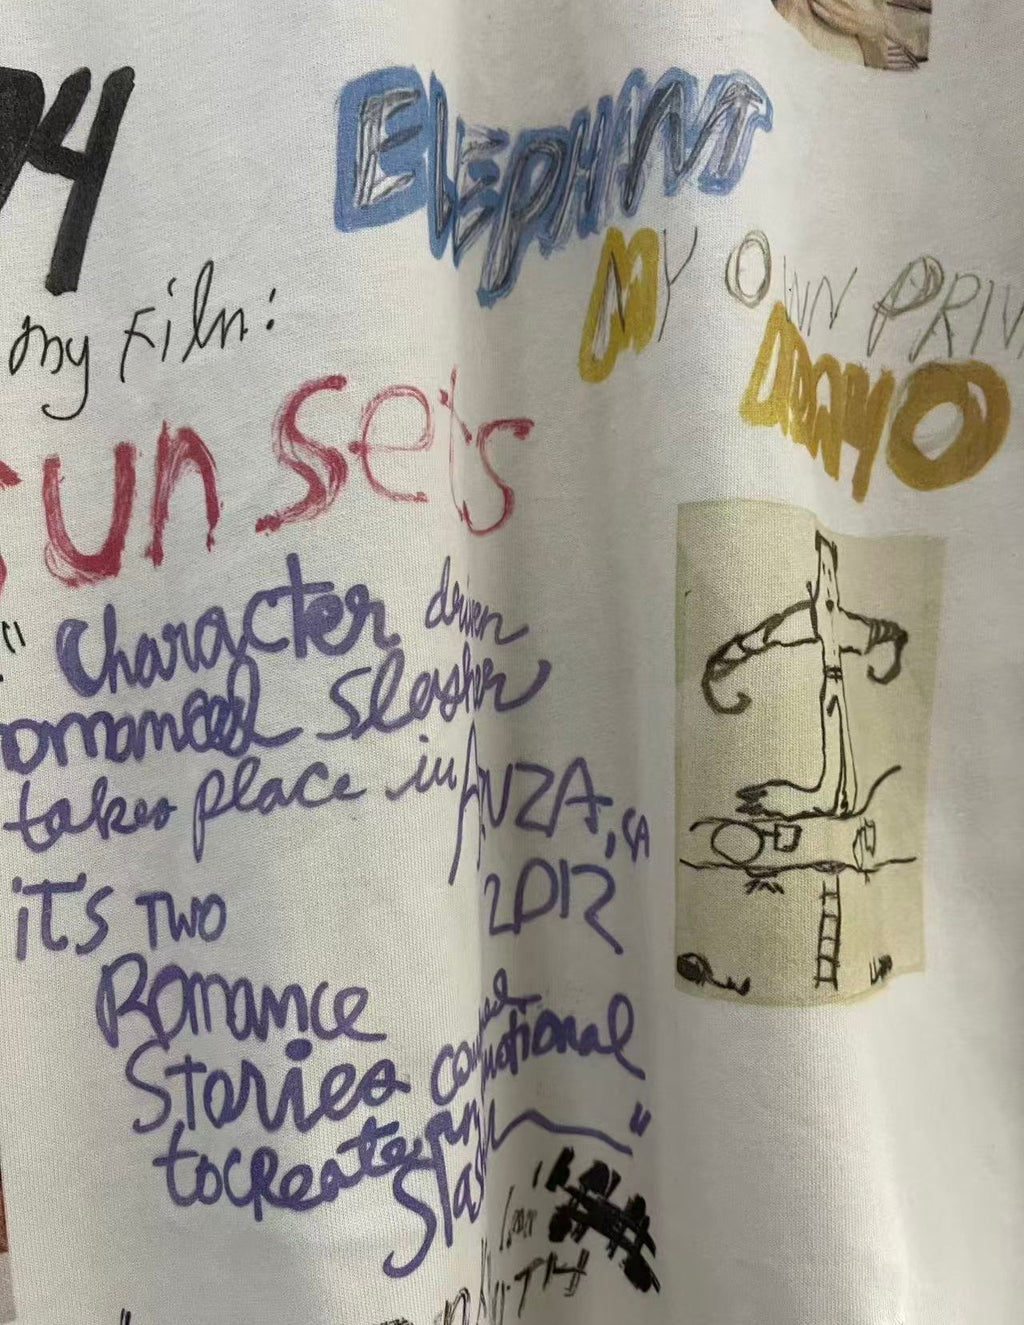 ELEPHANT
MY OWN PRIV
my Film:
sunsets
" Character driven
slasher
takes place in ANZA, CA
2012
it's TWO
Romance
Stories
to create an emotional
slash "